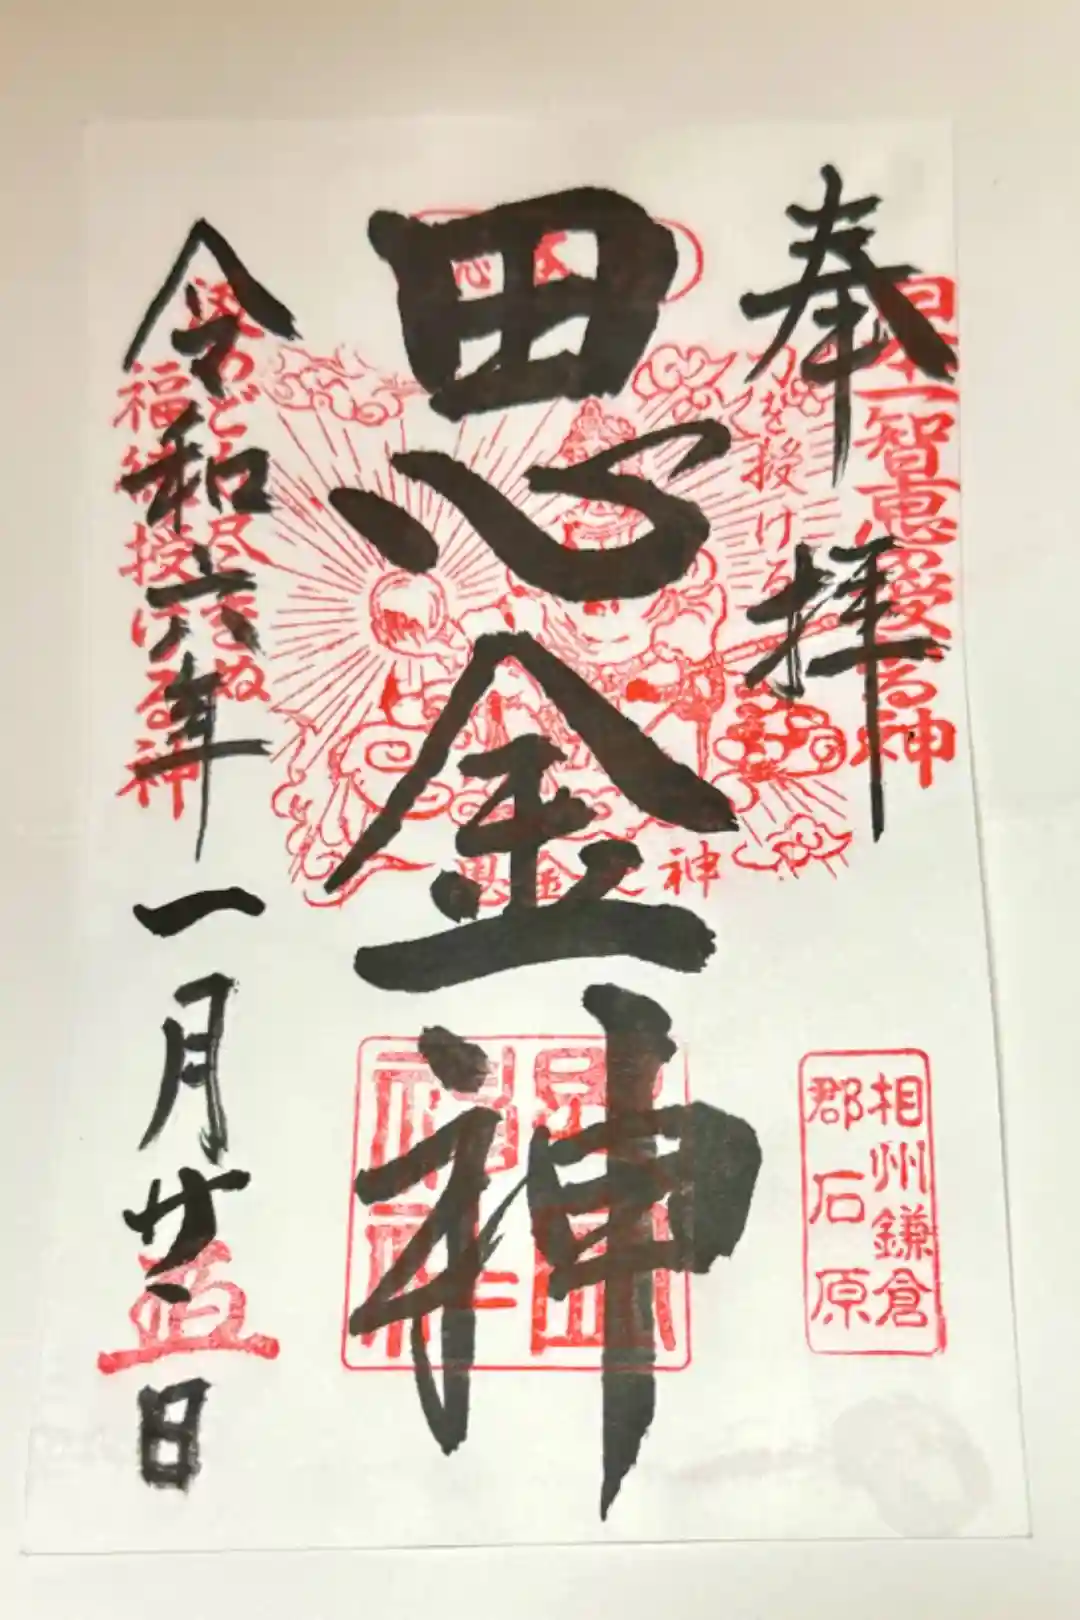 奉拝
日本一智恵を授る神
力を授ける
思金神
思金之神
相州鎌倉
郡石原
汲めども尽きぬ
福縁授ける神
令和六年一月廿五日